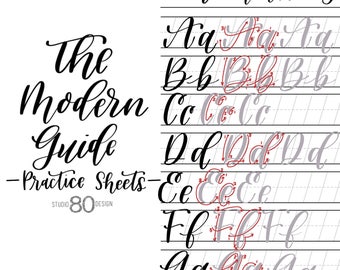 The
Modern
Guide
-Practice Sheets-
STUDIO 80 DESIGN
Aa Aa Aa
Bb Bb Bb
Cc Cc Cc
Dd Dd Dd
Ee Ee Ee
Ff Ff Ff